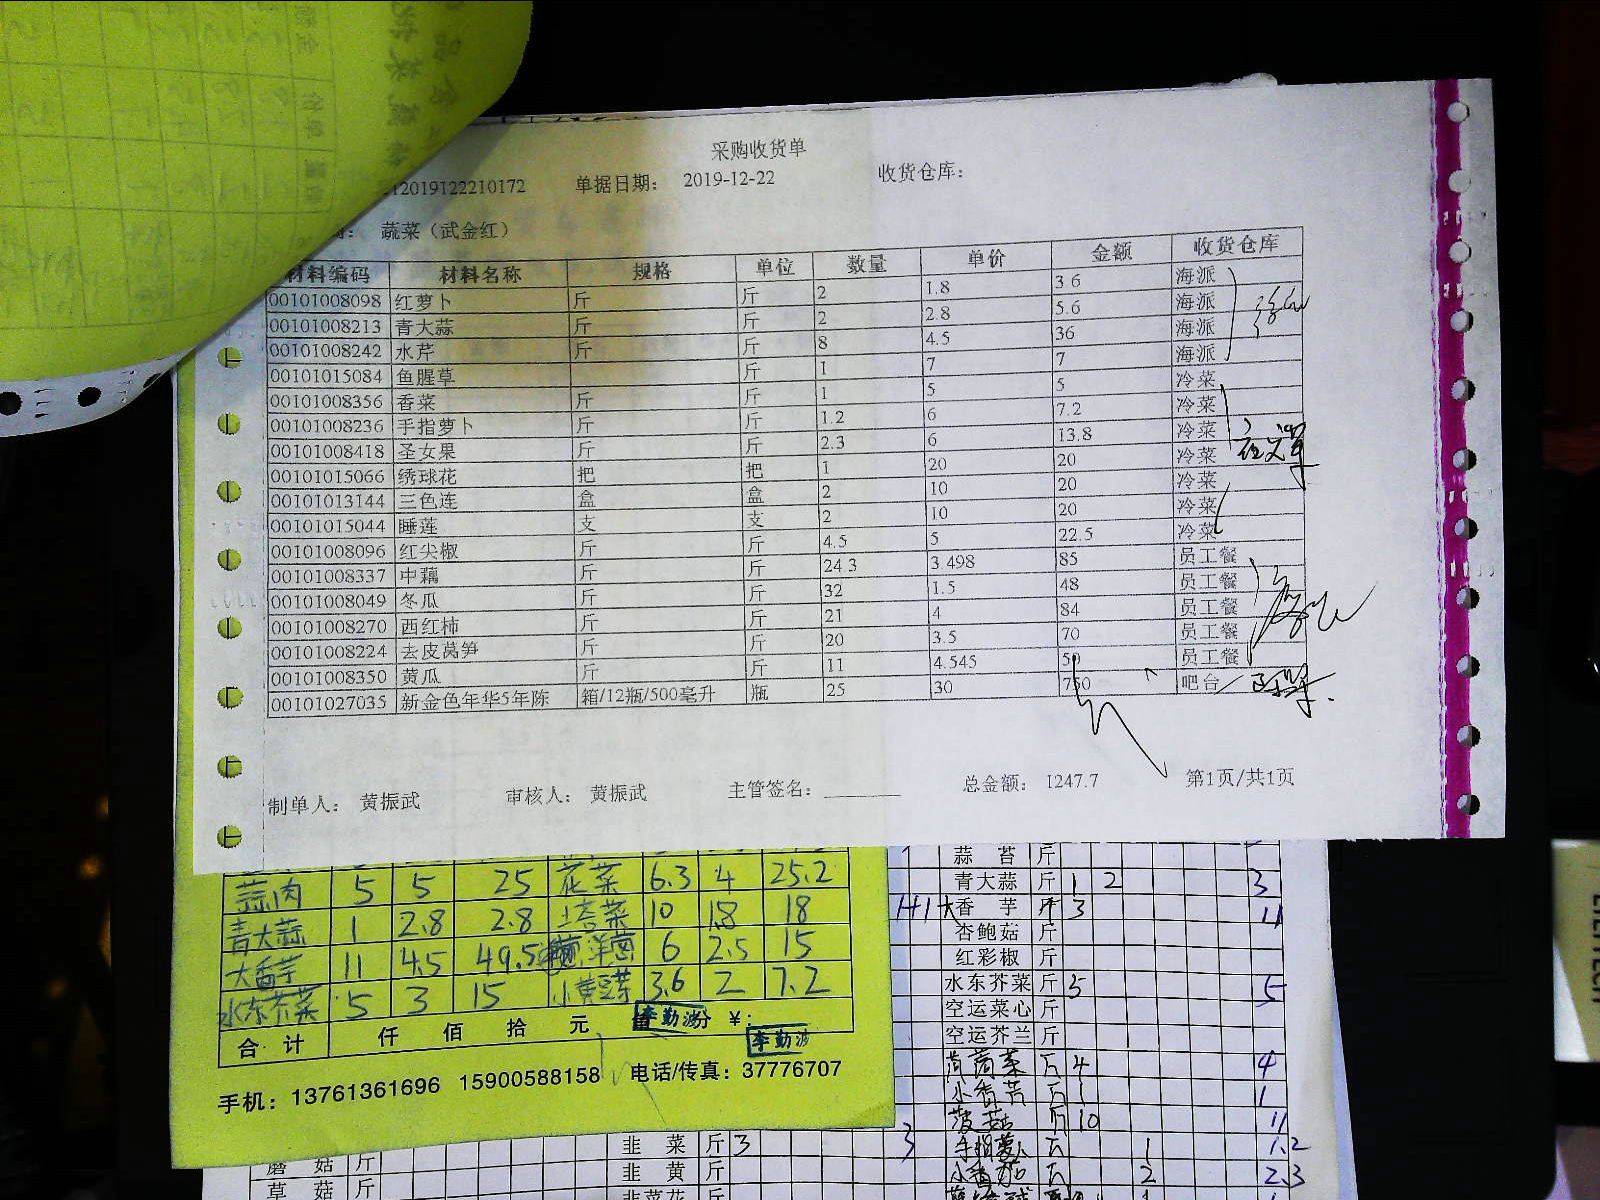 采购收货单
12019122210172 单据日期： 2019-12-22 收货仓库：
蔬菜（武金红）
材料编码 材料名称 规格 单位 数量 单价 金额 收货仓库
00101008098 红萝卜 斤 斤 2 1.8 3.6 海派
00101008213 青大蒜 斤 斤 2 2.8 5.6 海派
00101008242 水芹 斤 斤 8 4.5 36 海派
00101015084 鱼腥草 斤 1 7 7 海派
00101008356 香菜 斤 斤 1 5 5 冷菜
00101008236 手指萝卜 斤 斤 1.2 6 7.2 冷菜
00101008418 圣女果 斤 斤 2.3 6 13.8 冷菜
00101015066 绣球花 把 把 1 20 20 冷菜
00101013144 三色连 盒 盒 2 10 20 冷菜
00101015044 睡莲 支 支 2 10 20 冷菜
00101008096 红尖椒 斤 斤 4.5 5 22.5 冷菜
00101008337 中藕 斤 斤 24.3 3.498 85 员工餐
00101008049 冬瓜 斤 斤 32 1.5 48 员工餐
00101008270 西红柿 斤 斤 21 4 84 员工餐
00101008224 去皮莴笋 斤 斤 20 3.5 70 员工餐
00101008350 黄瓜 斤 斤 11 4.545 50 员工餐
00101027035 新金色年华5年陈 箱/12瓶/500毫升 瓶 25 30 750 吧台
制单人： 黄振武 审核人： 黄振武 主管签名： 总金额： 1247.7 第1页/共1页
蒜肉 5 5 25 花菜 6.3 4 25.2
青大蒜 1 2.8 2.8 塔菜 10 1.8 18
大香芋 11 4.5 49.5 洋葱 6 2.5 15
水东芥菜 5 3 15 小黄豆芽 3.6 2 7.2
合计 仟 佰 拾 元 分 ￥：
李勤波
李勤波
手机：13761361696 15900588158 电话/传真：37776707
蒜苔 斤
青大蒜 斤 1 2 3
大香芋 斤 3 11
杏鲍菇 斤
红彩椒 斤
水东芥菜 斤 5 5
空运菜心 斤
空运芥兰 斤
茼蒿菜 斤 4 4
小香芹 斤 1 1
菠菇 斤 10 11
手指萝卜 斤 1 1.2
2 2.3
韭菜 斤 3 3
韭黄 斤
韭菜花 斤
蘑菇 斤
草菇 斤